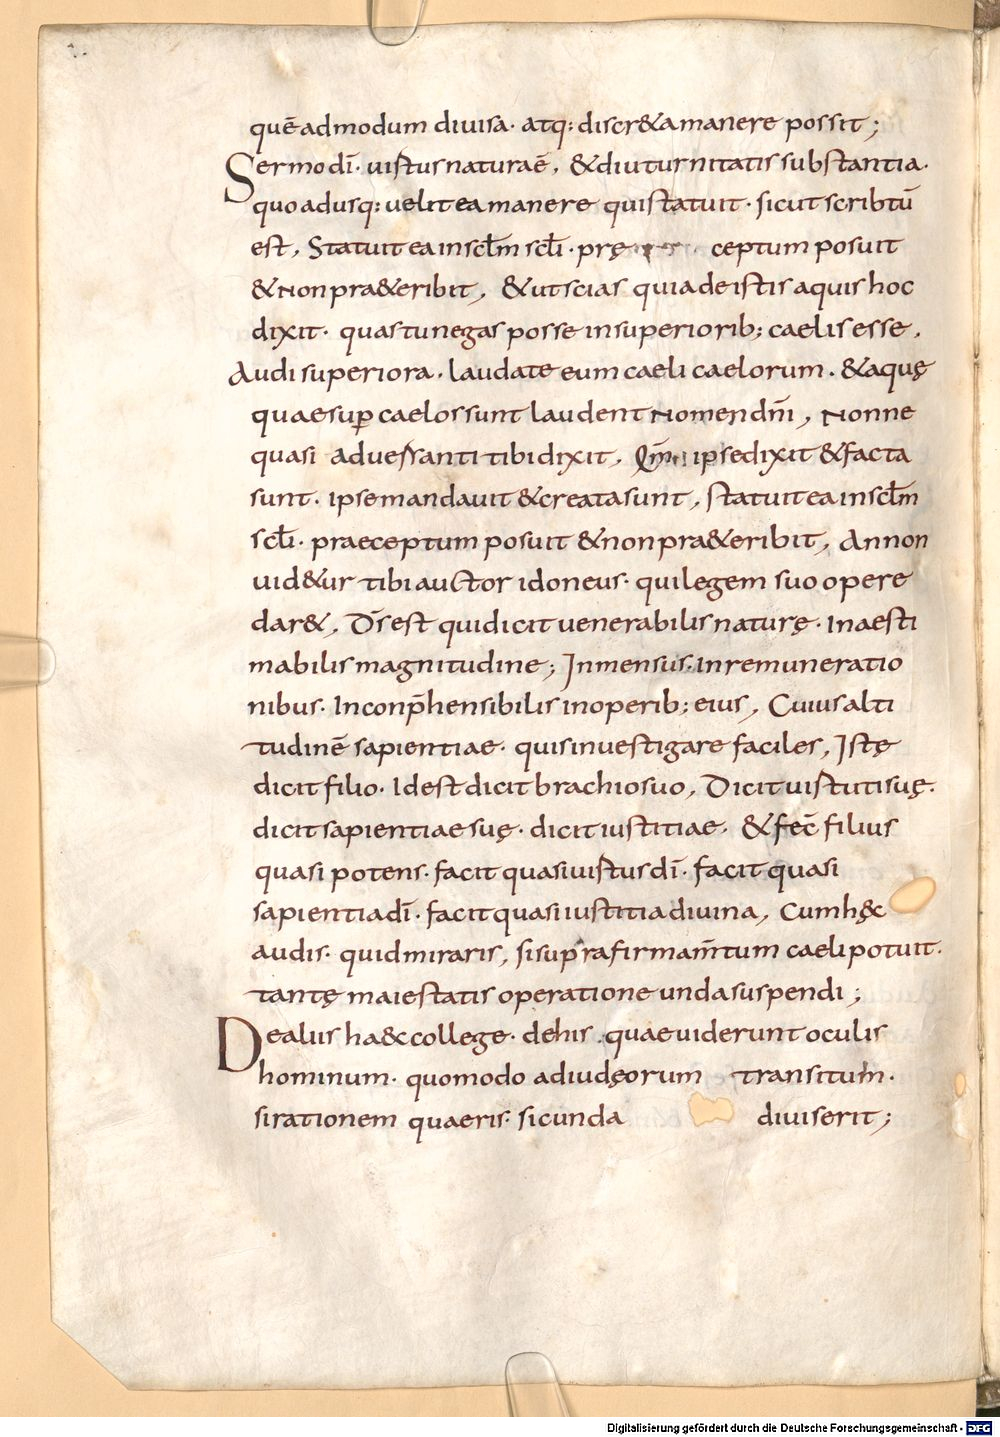 quēadmodum diuisa· atq: discr&amanere possit;
Sermo dī· uirtus naturaē, &diuturnitatis substantia·
quo adusq: uelit ea manere qui statuit· sicut scribtū
est, Statuit ea in sclm scli· prę ceptum posuit
&non pra&eribit, &ut scias quia de istis aquis hoc
dixit· quas tu negas posse in superiorib; caelis esse,
Audi superiora· laudate eum caeli caelorum· &aquę
quae sup caelos sunt laudent nomen dnī, Nonne
quasi aduersanti tibi dixit, Qm ipse dixit &facta
sunt· ipse mandauit &creata sunt, statuit ea in sclm
scli· praeceptum posuit &non pra&eribit, An non
uid&ur tibi auctor idoneus· qui legem suo opere
dar&, Ds est qui dicit uenerabilis naturę· Inaesti
mabilis magnitudine; Inmensus· In remuneratio
nibus· Inconphensibilis in operib; eius, Cuius alti
tudinē sapientiae· quis inuestigare faciles, Istę
dicit filio· Id est dicit brachio suo, Dicit uirtuti suę·
dicit sapientiae suę· dicit iustitiae· &fec filius
quasi potens· facit quasi uirtus dī· facit quasi
sapientia dī· facit quasi iustitia diuina, Cum hęc
audis· quid miraris, si supra firmamtum caeli potuit·
tantę maiestatis operatione unda suspendi;
De aliis ha&c college· de his quae uiderunt oculis
hominum· quomodo ad iudęorum transitum·
si rationem quaeris· sic unda diuiserit;
Digitalisierung gefördert durch die Deutsche Forschungsgemeinschaft - DFG